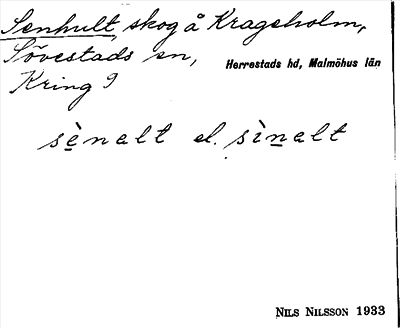 Senhult, skog å Krageholm,
Sövestads sn, Herrestads hd, Malmöhus län
Kring 9
sè̱nalt el. sìṉalt
NILS NILSSON 1933